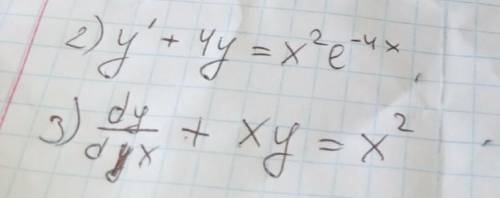 2) y' + 4y = x²e⁻⁴ˣ,
3) dy/dx + xy = x².